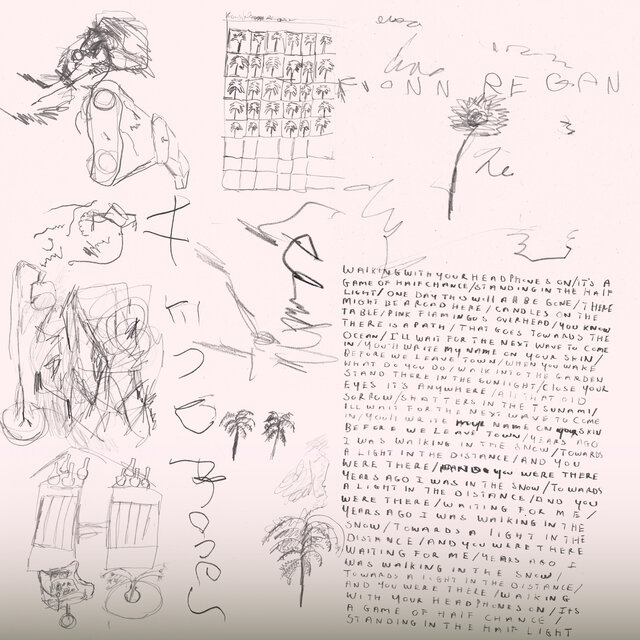 FIONN REGAN
HEADPHONES
WALKING WITH YOUR HEADPHONES ON/IT'S A
GAME OF HALF CHANCE/STANDING IN THE HALF
LIGHT/ONE DAY THIS WILL ALL BE GONE/THERE
MIGHT BE A ROAD HERE/CANDLES ON THE
TABLE/PINK FLAMINGOS OVERHEAD/YOU KNOW
THERE IS A PATH/THAT GOES TOWARDS THE
OCEAN/I'LL WAIT FOR THE NEXT WAVE TO COME
IN/YOU'LL WRITE MY NAME ON YOUR SKIN/
BEFORE WE LEAVE TOWN/WHEN YOU WAKE
WHAT DO YOU DO/WALK INTO THE GARDEN
STAND THERE IN THE SUNLIGHT/CLOSE YOUR
EYES IT'S ANYWHERE/ALL THAT OLD
SORROW/SHATTERS IN THE TSUNAMI/
ILL WAIT FOR THE NEXT WAVE TO COME
IN/YOU'LL WRITE MY NAME ON YOUR SKIN
BEFORE WE LEAVE TOWN/YEARS AGO
I WAS WALKING IN THE SNOW/TOWARDS
A LIGHT IN THE DISTANCE/AND YOU
WERE THERE/AND YOU WERE THERE
YEARS AGO I WAS IN THE SNOW/TOWARDS
A LIGHT IN THE DISTANCE/AND YOU
WERE THERE/WAITING FOR ME/
YEARS AGO I WAS WALKING IN THE
SNOW/TOWARDS A LIGHT IN THE
DISTANCE/AND YOU WERE THERE
WAITING FOR ME/YEARS AGO I
WAS WALKING IN THE SNOW/
TOWARDS A LIGHT IN THE DISTANCE/
AND YOU WERE THERE/WALKING
WITH YOUR HEADPHONES ON/ITS
A GAME OF HALF CHANCE/
STANDING IN THE HALF LIGHT